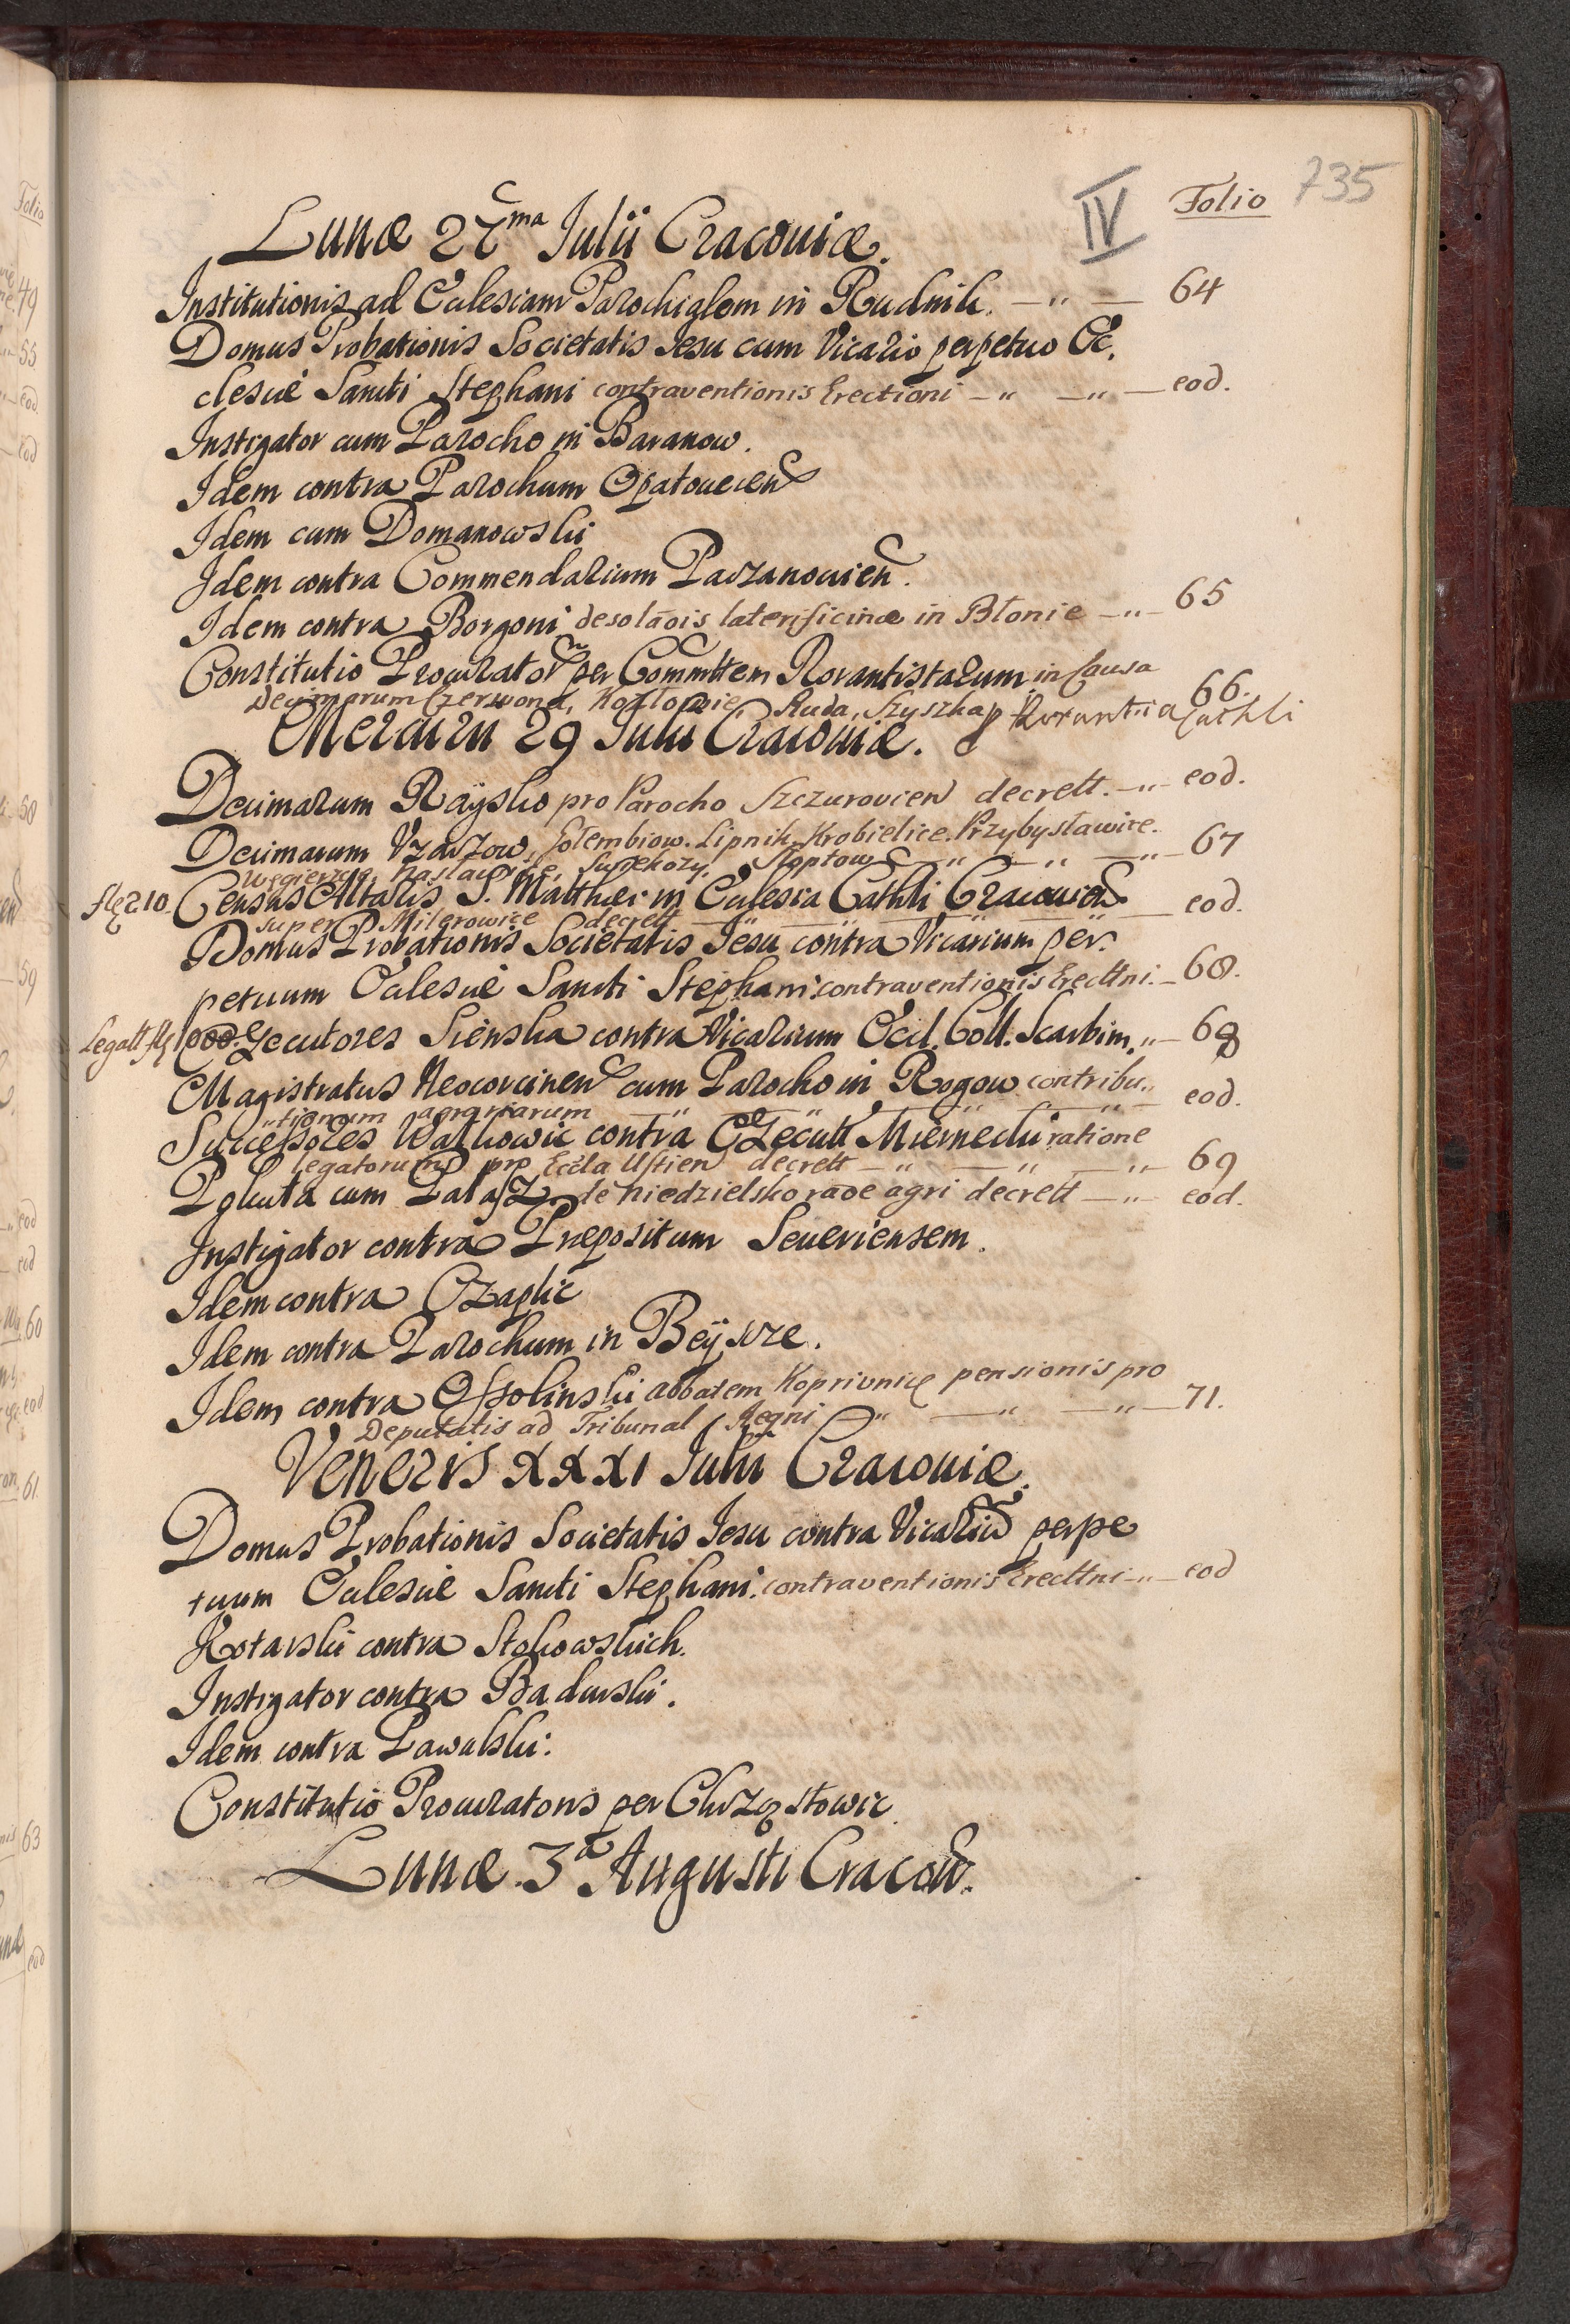 IV Folio 735
Lunæ 27ma Julii Cracoviæ.
Institutionis ad Eclesiam Parochialem in Rudnik. —"— 64
Domus Probationis Societatis Jesu cum Vicario perpetuo Ec.
clesiæ Sancti Stephani contraventionis Erectioni —" —" — eod.
Instigator cum Parocho in Baranow.
Idem contra Parochum Opatovecien
Idem cum Domanowski
Idem contra Commendarium Paczanovien.
Idem contra Borgoni desolãois laterificinæ in Błonie —"— 65
Constitutio Procurator per Committem Rorantistarum in Causa
Decimarum Czerwona, Ruda, Szyszka p Rorantria Cathli 66.
Mercurii 29 Julii Cracoviæ.
Decimarum Raÿsko pro Parocho Szczurovicen decrett. —"— eod.
Decimarum Vzaszow, Gołembiow. Lipnik. Krobielice. Przybysławice.
Węgierzce, Nasławice, Susekozy, Słoptow —" —" —"— 67
flę 210. Census Altaris S. Matthæi in Eclesia Cathli Cracovien
super Milerowice decrett —" —" —" — eod.
Domus Probationis Societatis Jesu contra Vicarium per.
petuum Eclesiæ Sancti Stephani contraventionis Erecttni. — 68.
Legatt flę 1000. Executores Sienska contra Vicarium Eccl. Coll. Scarbim. "— 68
Magistratus Neocorcinen cum Parocho in Rogow contribu,,
,,tionum agrariarum —" —" —" —"— eod.
Successores Walkowic contra Executt Miernecki ratione
legatorum pro Eccla Ustien decrett —" —" —"— 69
Pękuta cum Pałasz de Niedzielsko raõe agri decrett —"— eod.
Instigator contra Præpositum Severiensem.
Idem contra Czaplic
Idem contra Parochum in Beÿsce.
Idem contra Ossolinski abbatem Koprivnicę pensionis pro
Deputatis ad Tribunal Regni —" —" —"— 71.
Veneris XXXI Julii Cracoviæ.
Domus Probationis Societatis Jesu contra Vicariũ perpe
tuum Eclesiæ Sancti Stephani. contraventionis Erecttni —"— eod
Kotarski contra Stokowskich.
Instigator contra Badurski.
Idem contra Pawalski.
Constitutio Procuratoris per Chrząstowic.
Lunæ. 3a Augusti Cracov.